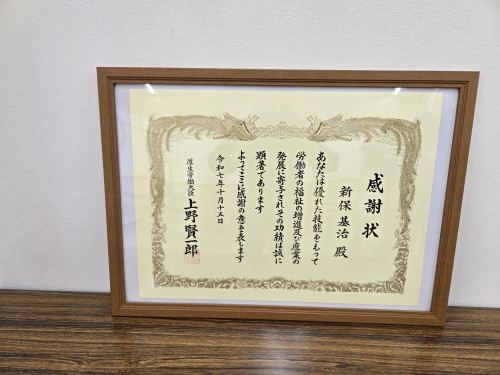 感謝状
新保基治殿
あなたは優れた技能をもって
労働者の福祉の増進及び産業の
発展に寄与されその功績は誠に
顕著であります
よってここに感謝の意を表します
令和七年十月十五日
厚生労働大臣 上野賢一郎